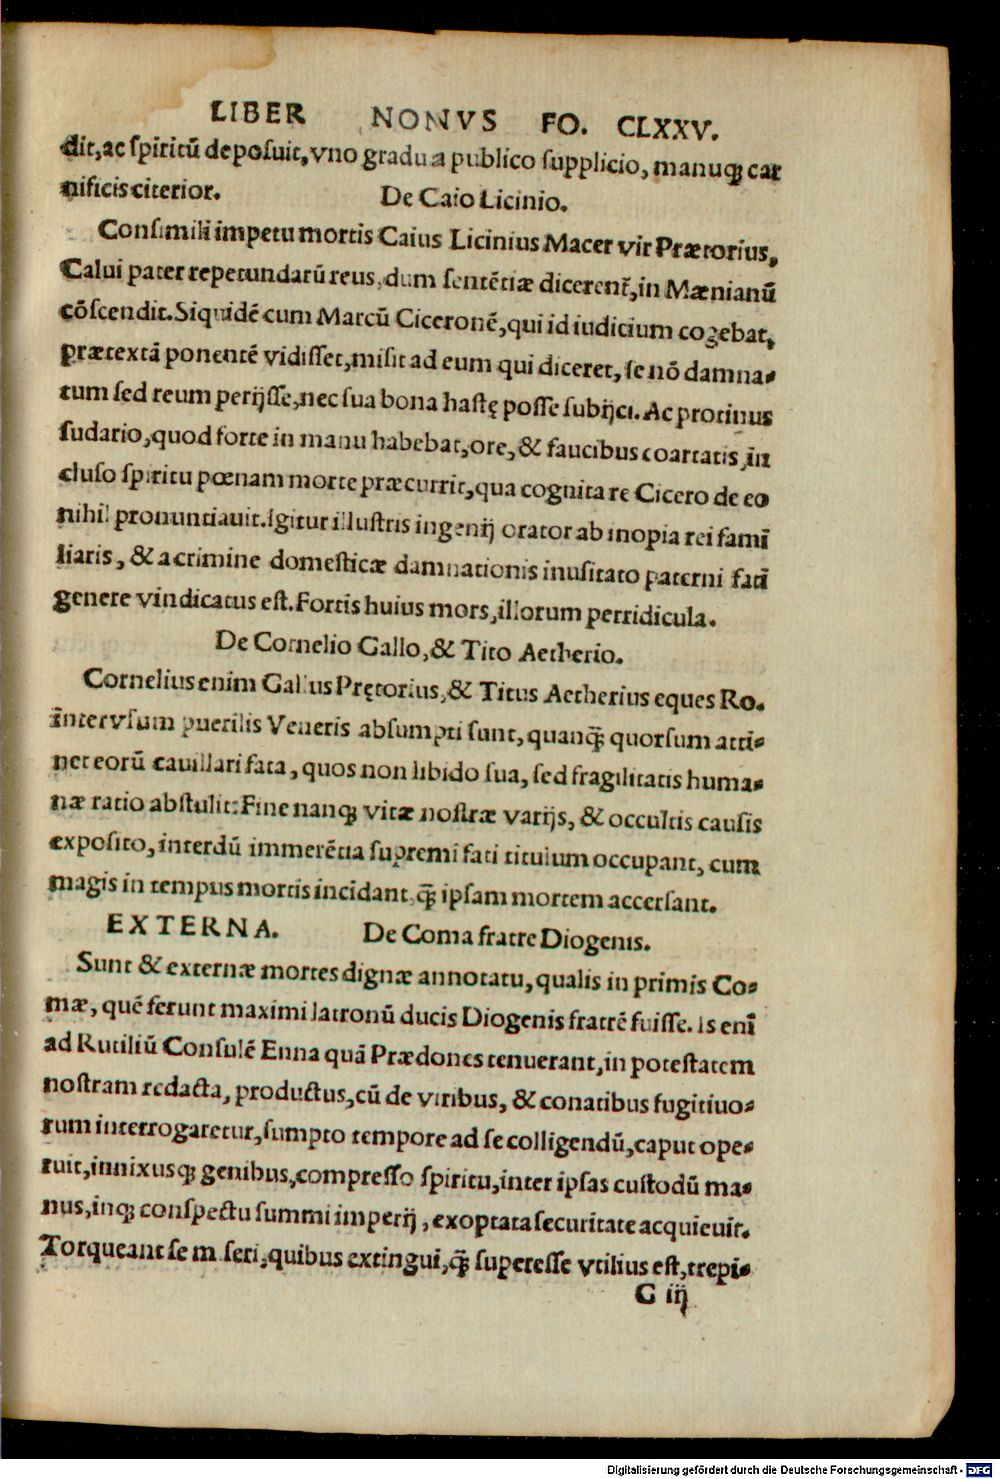 LIBER NONVS FO. CLXXV.
dit,ac spiritū deposuit,vno gradu a publico supplicio, manuq; car
nificis citerior. De Caio Licinio.
Consimili impetu mortis Caius Licinius Macer vir Prætorius,
Calui pater repetundarū reus, dum sentētiæ dicerent̄, in Mænianū
cōscendit. Siquidē cum Marcū Ciceronē, qui id iudicium cogebat,
prætextā ponentē vidisset, misit ad eum qui diceret, se nō damna-
tum sed reum perijsse, nec sua bona hastę posse subijci. Ac protinus
sudario, quod forte in manu habebat, ore, & faucibus coartatis, in
cluso spiritu pœnam morte præcurrit, qua cognita re Cicero de eo
nihil pronuntiauit. Igitur illustris ingenij orator ab inopia rei famī
liaris, & a crimine domesticæ damnationis inusitato paterni fati
genere vindicatus est. Fortis huius mors, illorum perridicula.
De Cornelio Gallo, & Tito Aetherio.
Cornelius enim Gallus Prętorius, & Titus Aetherius eques Ro.
inter vsum puerilis Veneris absumpti sunt, quanq̄ quorsum atti-
net eorū cauillari fata, quos non libido sua, sed fragilitatis huma-
næ ratio abstulit: Fine nanq; vitæ nostræ varijs, & occultis causis
exposito, interdū immerētia supremi fati titulum occupant, cum
magis in tempus mortis incidant q̄ ipsam mortem accersant.
EXTERNA. De Coma fratre Diogenis.
Sunt & externæ mortes dignæ annotatu, qualis in primis Co-
mæ, quē ferunt maximi latronū ducis Diogenis fratrē fuisse. Is enī
ad Rutiliū Consulē Enna quā Prædones tenuerant, in potestatem
nostram redacta, productus, cū de viribus, & conatibus fugitiuo-
rum interrogaretur, sumpto tempore ad se colligendū, caput ope-
ruit, innixusq; genibus, compresso spiritu, inter ipsas custodū ma-
nus, inq; conspectu summi imperij, exoptata securitate acquieuit.
Torqueant se m seri, quibus extingui, q̄ superesse vtilius est, trepi-
G iij
Digitalisierung gefördert durch die Deutsche Forschungsgemeinschaft - DFG